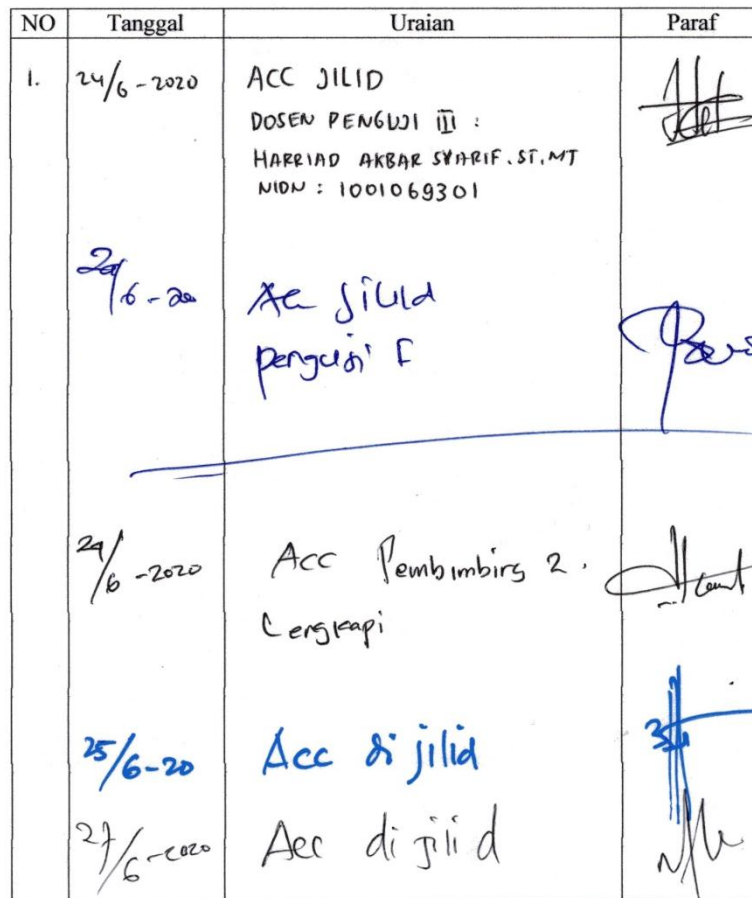 NO Tanggal Uraian Paraf
1. 24/6-2020 ACC JILID
DOSEN PENGUJI III :
HARRIAD AKBAR SYARIF.ST,MT
NIDN : 1001069301
24/6-20 Acc Jilid
Penguji I
24/6-2020 Acc Pembimbing 2.
Lengkapi
25/6-20 Acc di jilid
27/6-2020 Acc di jilid